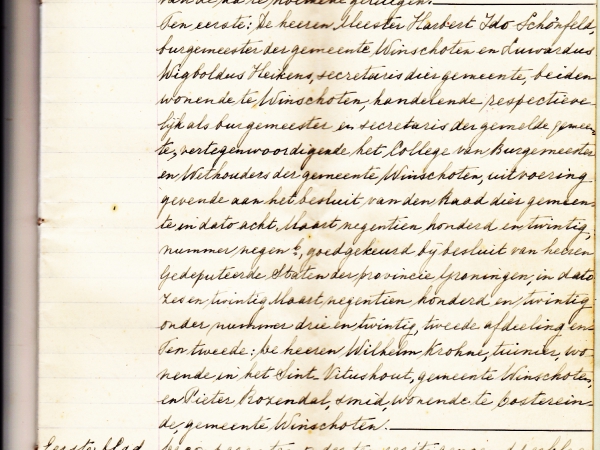 Ten eerste: De heeren Meester Harbert Ido Schönfeld,
burgemeester der gemeente Winschoten en Luwardus
Wigboldus Heikens, secretaris dier gemeente, beiden
wonende te Winschoten, handelende respectieve-
lijk als burgemeester en secretaris der gemelde gemeen-
te, vertegenwoordigende het College van Burgemeester
en Wethouders der gemeente Winschoten, uitvoering
gevende aan het besluit van den Raad dier gemeen-
te in dato acht Maart negentien honderd en twintig,
nummer negen b, goedgekeurd bij besluit van heeren
Gedeputeerde Staten der provincie Groningen, in dato
zes en twintig Maart negentien honderd en twintig
onder nummer drie en twintig, tweede afdeeling en:
Ten tweede: De heeren Wilhelm Krohne, tuinier, wo-
nende in het Sint-Vitushout, gemeente Winschoten,
en Pieter Rozendal, smid, wonende te Oosterein-
de, gemeente Winschoten.
Eerste blad